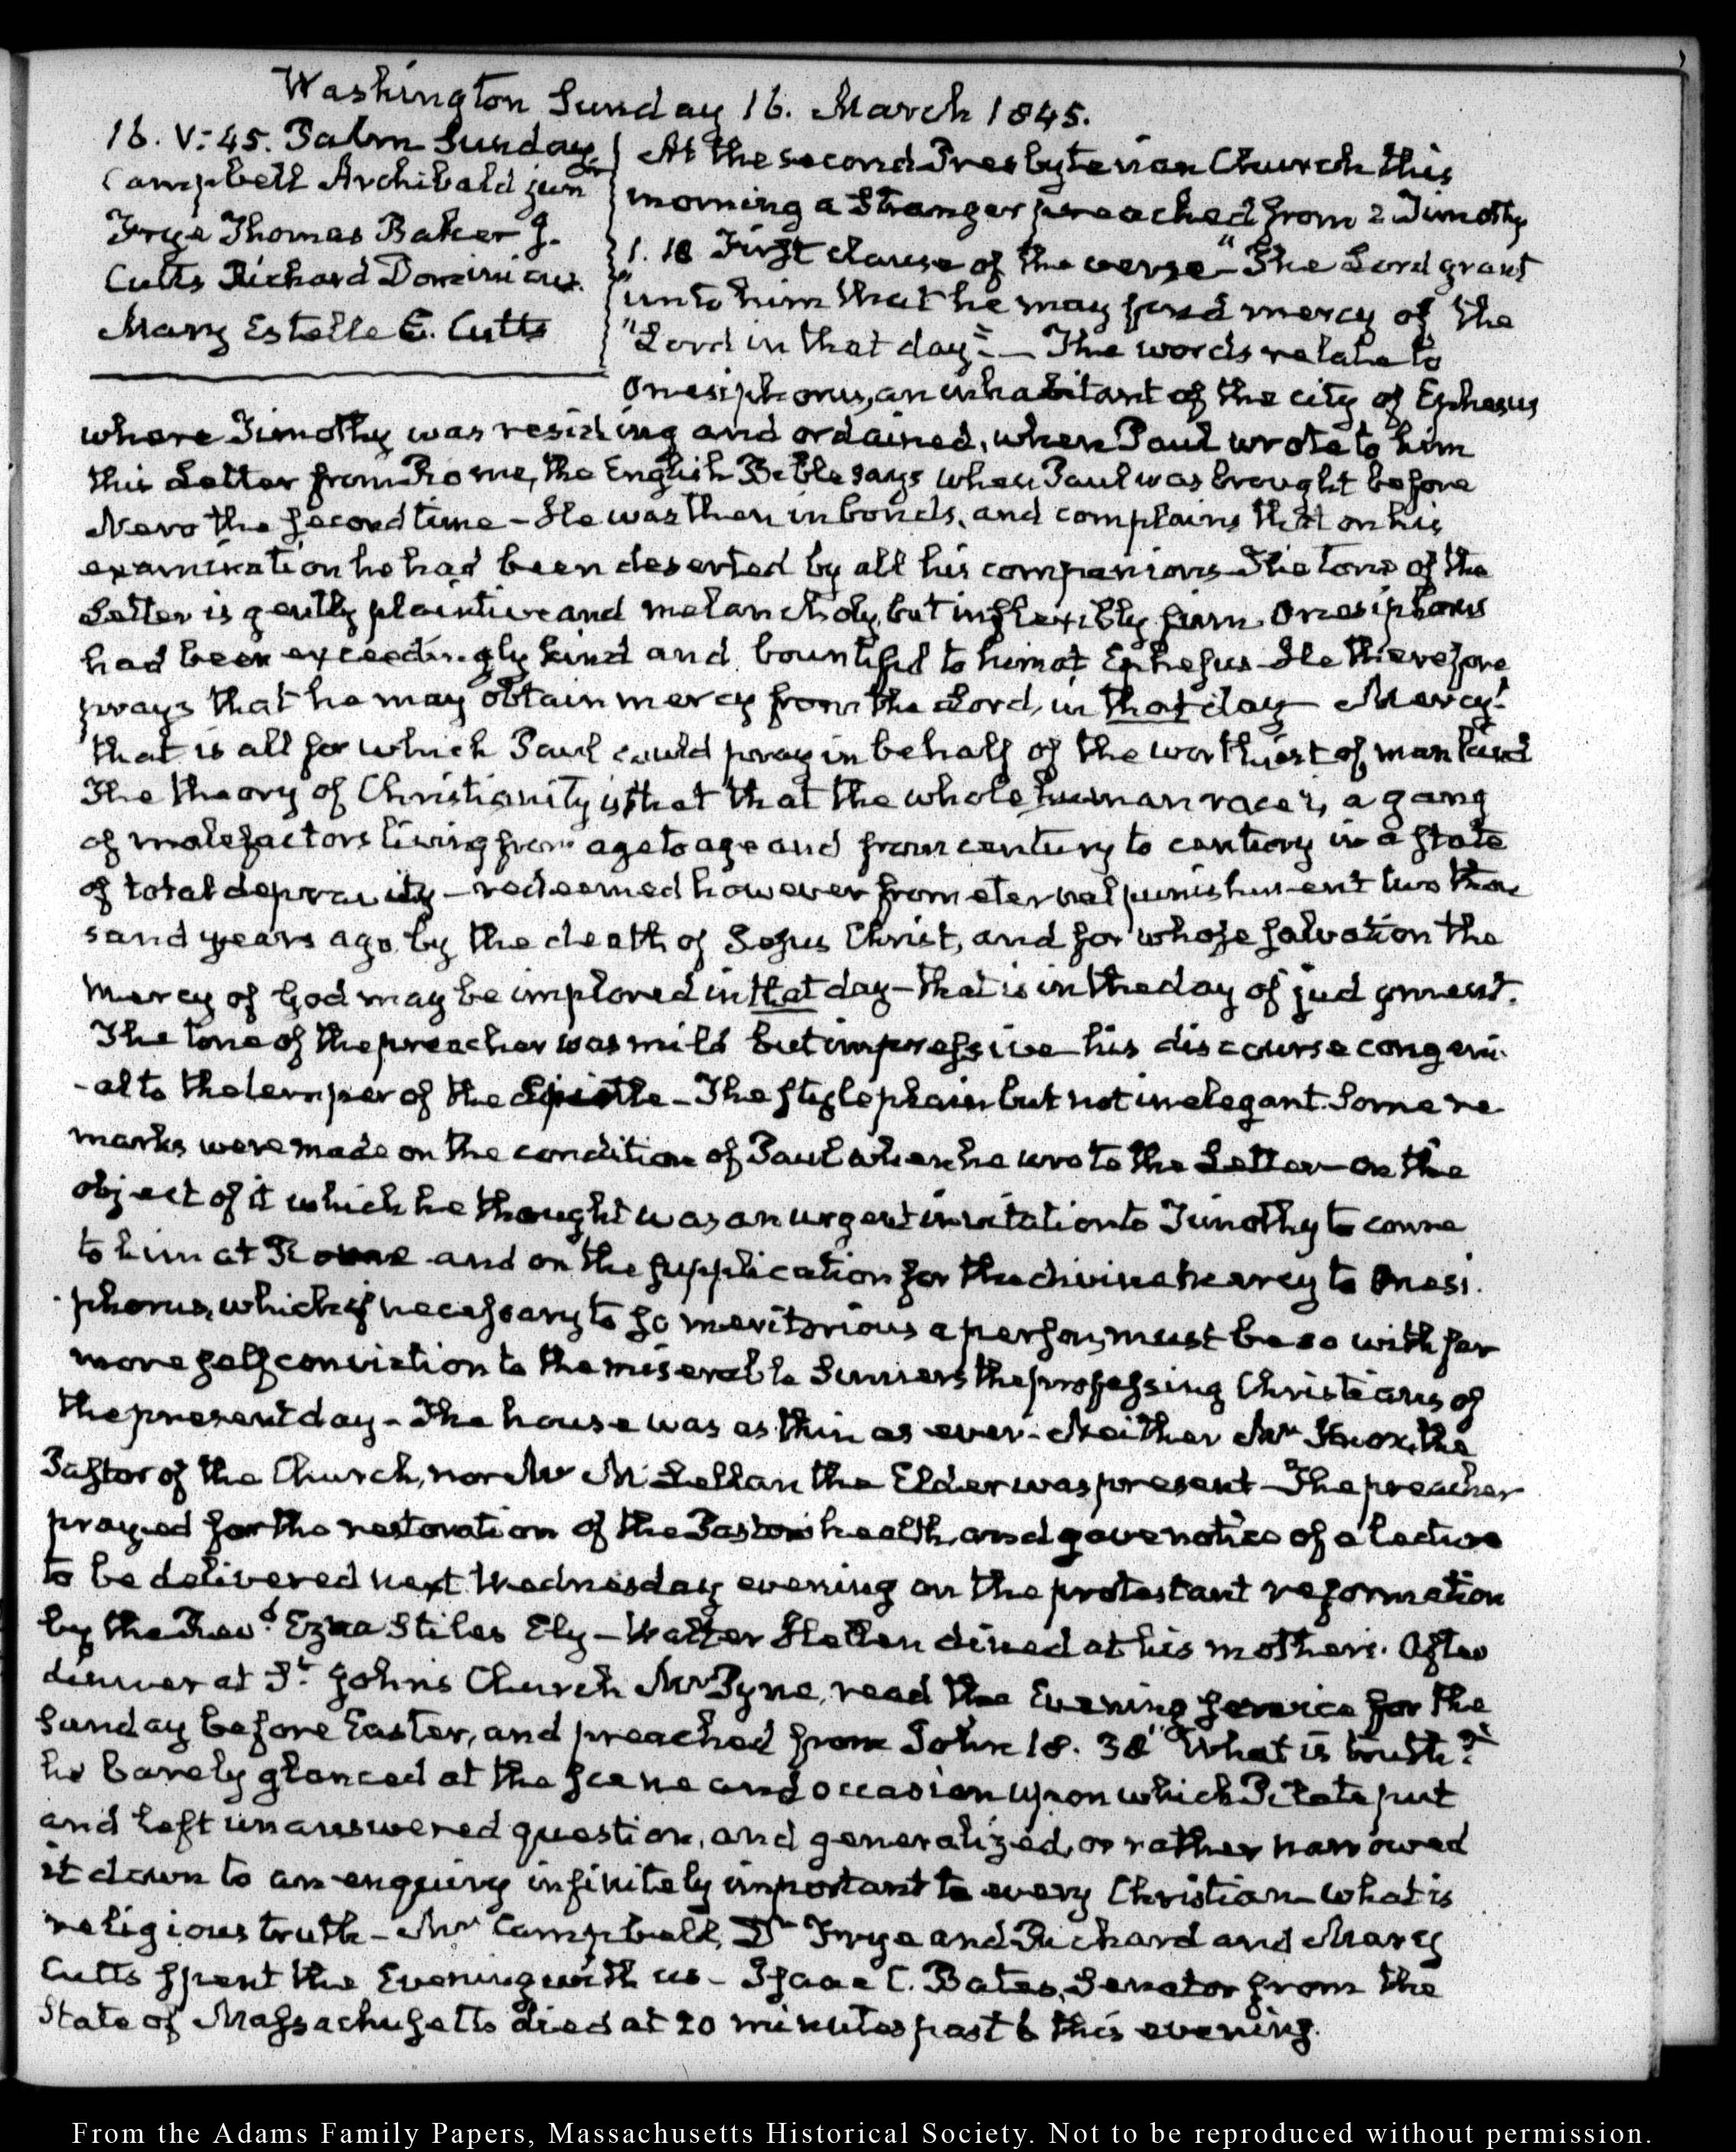 Washington Sunday 16. March 1845.
16. V:45. Palm Sunday.
Campbell Archibald junr
Frye Thomas Baker J.
Cutts Richard Dominicus.
Mary Estelle E. Cutts
At the second Presbyterian Church this
morning a Stranger preached from 2 Timothy
1. 18 First clause of the verse "The Lord grant
"unto him that he may find mercy of the
"Lord in that day"— The words relate to
Onesiphorus, an inhabitant of the city of Ephesus
where Timothy was residing and ordained, when Paul wrote to him
this Letter from Rome, the English Bible says when Paul was brought before
Nero the second time - He was then in bonds, and complains that on his
examination he had been deserted by all his companions - The tone of the
Letter is gently plaintive and melancholy, but inflexibly firm. Onesiphorus
had been exceedingly kind and bountiful to him at Ephesus - He therefore
prays that he may obtain mercy from the Lord, in that day - Mercy!
that is all for which Paul could pray in behalf of the worthiest of mankind
The theory of Christianity is that that the whole human race is, a gang
of malefactors living from age to age and from century to century in a state
of total depravity - redeemed however from eternal punishment two thou
sand years ago by the death of Jesus Christ, and for whose salvation the
mercy of God may be implored in that day - that is in the day of judgment.
The tone of the preacher was mild but impressive - his discourse congeni
-al to the temper of the Epistle - The style plain but not inelegant. Some re
marks were made on the condition of Paul when he wrote the Letter - on the
object of it which he thought was an urgent invitation to Timothy to come
to him at Rome and on the supplication for the divine mercy to Onesi
-phorus, which if necessary to so meritorious a person, must be so with far
more self conviction to the miserable Sinners the professing Christians of
the present day - The house was as thin as ever - Neither Mr Knox, the
Pastor of the Church, nor Mr McLellan the Elder was present - The preacher
prayed for the restoration of the Pastor's health, and gave notice of a lecture
to be delivered next Wednesday evening on the protestant reformation
by the Revd. Ezra Stiles Ely - Walter Hellen dined at his mother's. After
dinner at St. John's Church Mr Pyne, read the Evening Service for the
Sunday before Easter, and preached from John 18. 38 "What is truth?"
he barely glanced at the scene and occasion upon which Pilate put
and left unanswered question, and generalized, or rather narrowed
it down to an enquiry infinitely important to every Christian - what is
religious truth - Mr Campbell, Dr Frye and Richard and Mary
Cutts spent the Evening with us - Isaac C. Bates, Senator from the
State of Massachusetts died at 20 minutes past 6 this evening.
From the Adams Family Papers, Massachusetts Historical Society. Not to be reproduced without permission.